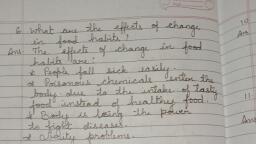 6. What are the effects of change
in food habits?
Ans The effects of change in food
habits are:
* People fall sick easily.
* Poisonous chemicals enter the
body due to the intake of tasty
food instead of healthy food.
* Body is losing the power
to fight diseases.
* Obesity problems.
10
Ans
11
Ans